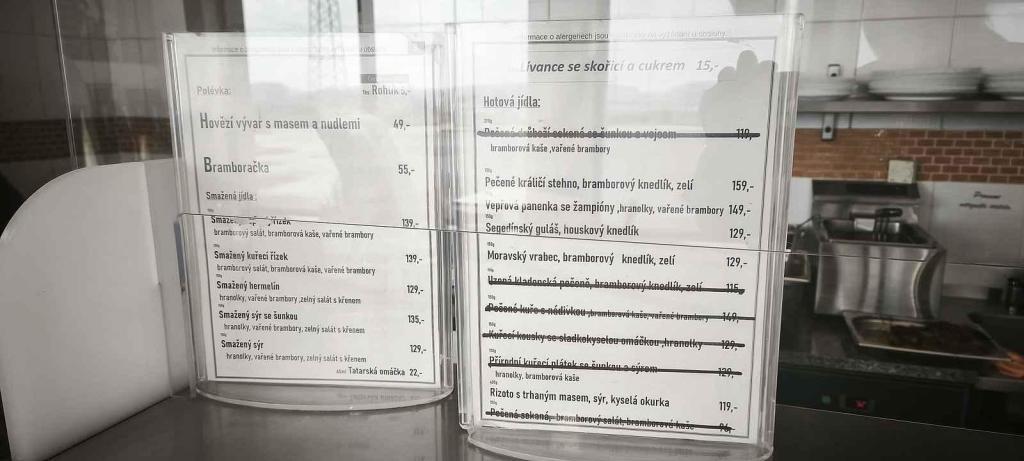 Polévka:
Rohlík 5,-
Hovězí vývar s masem a nudlemi 49,-
Bramboračka 55,-
Smažená jídla:
řízek 139,-
bramborový salát, bramborová kaše, vařené brambory
Smažený kuřecí řízek 139,-
bramborový salát, bramborová kaše, vařené brambory
Smažený hermelín 129,-
hranolky, vařené brambory ,zelný salát s křenem
Smažený sýr se šunkou 135,-
hranolky, vařené brambory, zelný salát s křenem
Smažený sýr 129,-
hranolky, vařené brambory, zelný salát s křenem
Tatarská omáčka 22,-
o alergenech jsou
Lívance se skořicí a cukrem 15,-
Hotová jídla:
Pečená drůbeží sekaná se šunkou a vejcem 119,-
bramborová kaše ,vařené brambory
Pečené králičí stehno, bramborový knedlík, zelí 159,-
Vepřová panenka se žampióny ,hranolky, vařené brambory 149,-
Segedínský guláš, houskový knedlík 129,-
Moravský vrabec, bramborový knedlík, zelí 129,-
Uzená kladenská pečeně, bramborový knedlík, zelí 115,-
Pečené kuře s nádivkou ,bramborová kaše, vařené brambory 149,-
Kuřecí kousky se sladkokyselou omáčkou ,hranolky 129,-
Přírodní kuřecí plátek se šunkou a sýrem 129,-
hranolky, bramborová kaše
Rizoto s trhaným masem, sýr, kyselá okurka 119,-
Pečená sekaná, bramborový salát, bramborová kaše 96,-